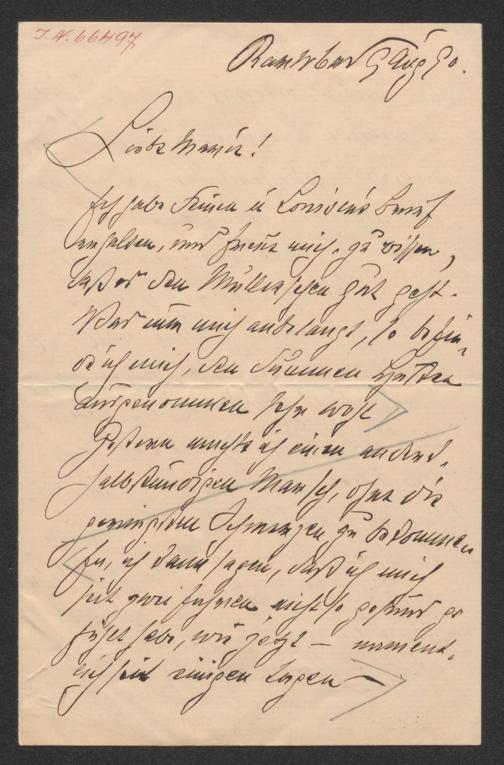 I. N. 66497
5 Aug 90.
Liebe Marie!
Ich habe Deinen u Louisens Brief
erhalten, und freue mich, zu wissen,
daß es den Müttern gut geht.
Was nun mich anbelangt, so befin-
de ich mich, den dummen Husten
ausgenommen sehr wohl
Gestern machte ich einen andert-
halbstündigen Marsch, ohne die
geringsten Schmerzen zu bekommen
ich kann sagen, daß ich mich
seit zwei Jahren nicht so gesund ge
fühlt habe, wie jetzt – nament-
lich seit einigen Tagen –